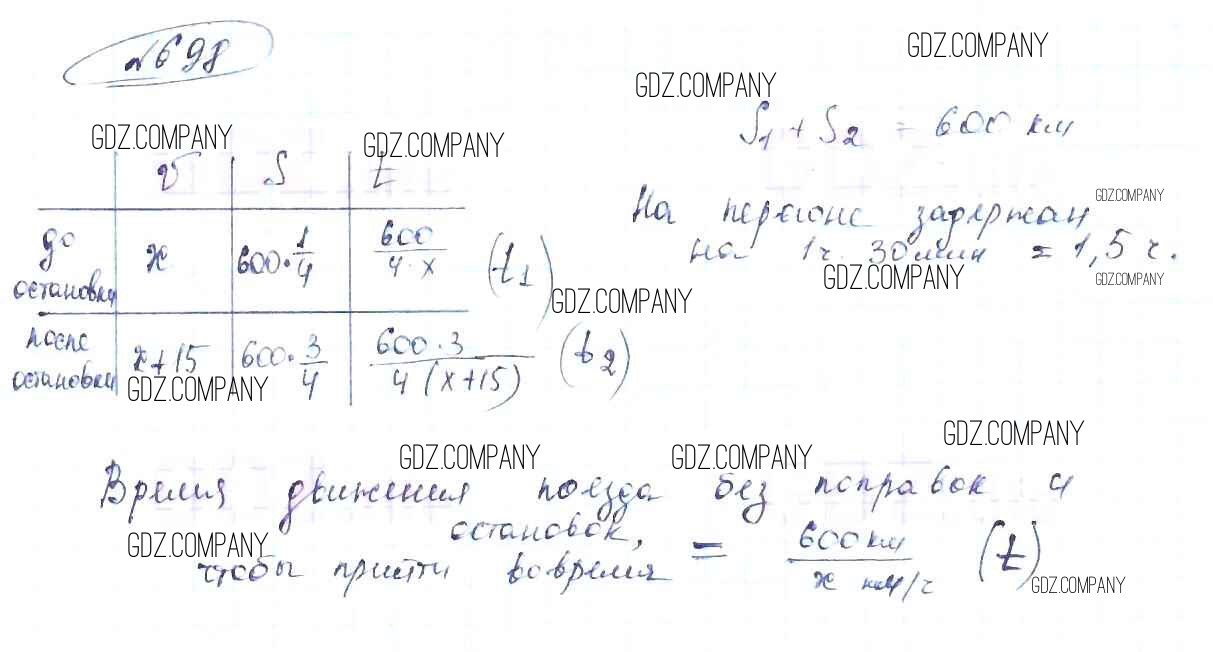 №698
GDZ.COMPANY
GDZ.COMPANY
S₁ + S₂ = 600 км
GDZ.COMPANY
GDZ.COMPANY
v S t
На перегоне задержан
GDZ.COMPANY
на 1ч. 30 мин = 1,5 ч.
до остановки x 600·1/4 600/4·x (t₁)
GDZ.COMPANY
GDZ.COMPANY
GDZ.COMPANY
после остановки x+15 600·3/4 600·3/4(x+15) (t₂)
GDZ.COMPANY
GDZ.COMPANY
GDZ.COMPANY
GDZ.COMPANY
Время движения поезда без поправок и
остановок,
GDZ.COMPANY
чтобы прийти вовремя = 600 км/x км/ч (t)
GDZ.COMPANY